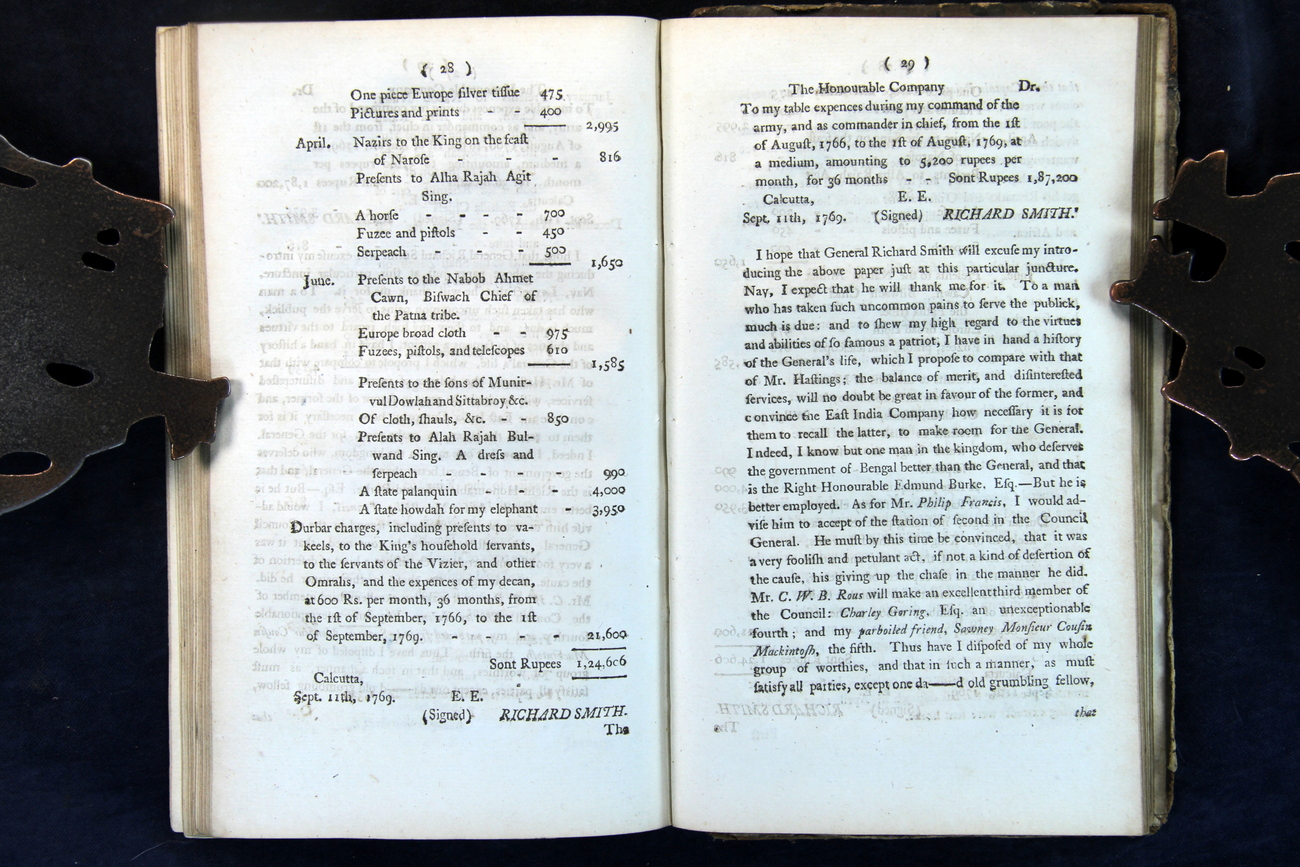 ( 28 )
One piece Europe ſilver tiſſue 475
Pictures and prints - - 400
2,995
April. Nazirs to the King on the feaſt
of Naroſe - - - 816
Preſents to Alha Rajah Agit
Sing.
A horſe - - - - 700
Fuzee and piſtols - - 450
Serpeach - - - 500
1,650
June. Preſents to the Nabob Ahmet
Cawn, Biſwach Chief of
the Patna tribe.
Europe broad cloth - - 975
Fuzees, piſtols, and teleſcopes 610
1,585
Preſents to the ſons of Munir-
vul Dowlah and Sittabroy &c.
Of cloth, ſhauls, &c. - - 850
Preſents to Alah Rajah Bul-
wand Sing. A dreſs and
ſerpeach - - - - 990
A ſtate palanquin - - - 4,000
A ſtate howdah for my elephant - 3,950
Durbar charges, including preſents to va-
keels, to the King's houſehold ſervants,
to the ſervants of the Vizier, and other
Omrahs, and the expences of my decan,
at 600 Rs. per month, 36 months, from
the 1ſt of September, 1766, to the 1ſt
of September, 1769. - - - - 21,600
Sont Rupees 1,24,606
Calcutta,
Sept. 11th, 1769. E. E.
(Signed) RICHARD SMITH.
The
( 29 )
The Honourable Company Dr.
To my table expences during my command of the
army, and as commander in chief, from the 1ſt
of Auguſt, 1766, to the 1ſt of Auguſt, 1769, at
a medium, amounting to 5,200 rupees per
month, for 36 months - - Sont Rupees 1,87,200
Calcutta, E. E.
Sept. 11th, 1769. (Signed) RICHARD SMITH.'
I hope that General Richard Smith will excuſe my intro-
ducing the above paper juſt at this particular juncture.
Nay, I expect that he will thank me for it. To a man
who has taken ſuch uncommon pains to ſerve the publick,
much is due: and to ſhew my high regard to the virtues
and abilities of ſo famous a patriot, I have in hand a hiſtory
of the General's life, which I propoſe to compare with that
of Mr. Haſtings; the balance of merit, and diſintereſted
ſervices, will no doubt be great in favour of the former, and
convince the Eaſt India Company how neceſſary it is for
them to recall the latter, to make room for the General.
Indeed, I know but one man in the kingdom, who deſerves
the government of Bengal better than the General, and that
is the Right Honourable Edmund Burke. Eſq.—But he is
better employed. As for Mr. Philip Francis, I would ad-
viſe him to accept of the ſtation of ſecond in the Council
General. He muſt by this time be convinced, that it was
a very fooliſh and petulant act, if not a kind of deſertion of
the cauſe, his giving up the chaſe in the manner he did.
Mr. C. W. B. Rous will make an excellent third member of
the Council: Charley Goring, Eſq. an unexceptionable
fourth; and my parboiled friend, Sawney Monſieur Couſin
Mackintoſh, the fifth. Thus have I diſpoſed of my whole
group of worthies, and that in ſuch a manner, as muſt
ſatisfy all parties, except one da——d old grumbling fellow,
that